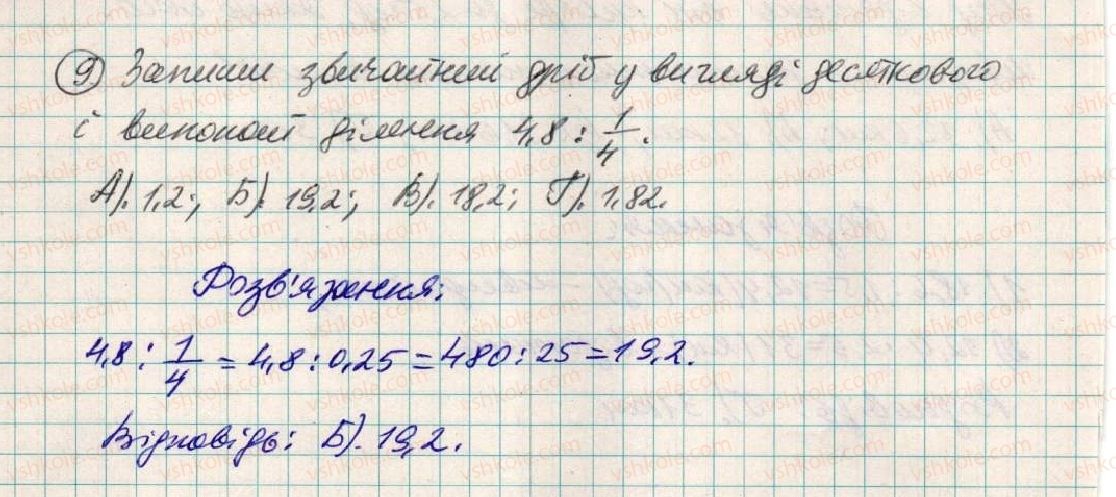 9 Запиши звичайний дріб у вигляді десяткового
і виконай ділення 4,8 : 1/4.
А). 1,2; Б). 19,2; В). 18,2; Г). 1,82.
Розв'язання:
4,8 : 1/4 = 4,8 : 0,25 = 480 : 25 = 19,2.
Відповідь: Б). 19,2.